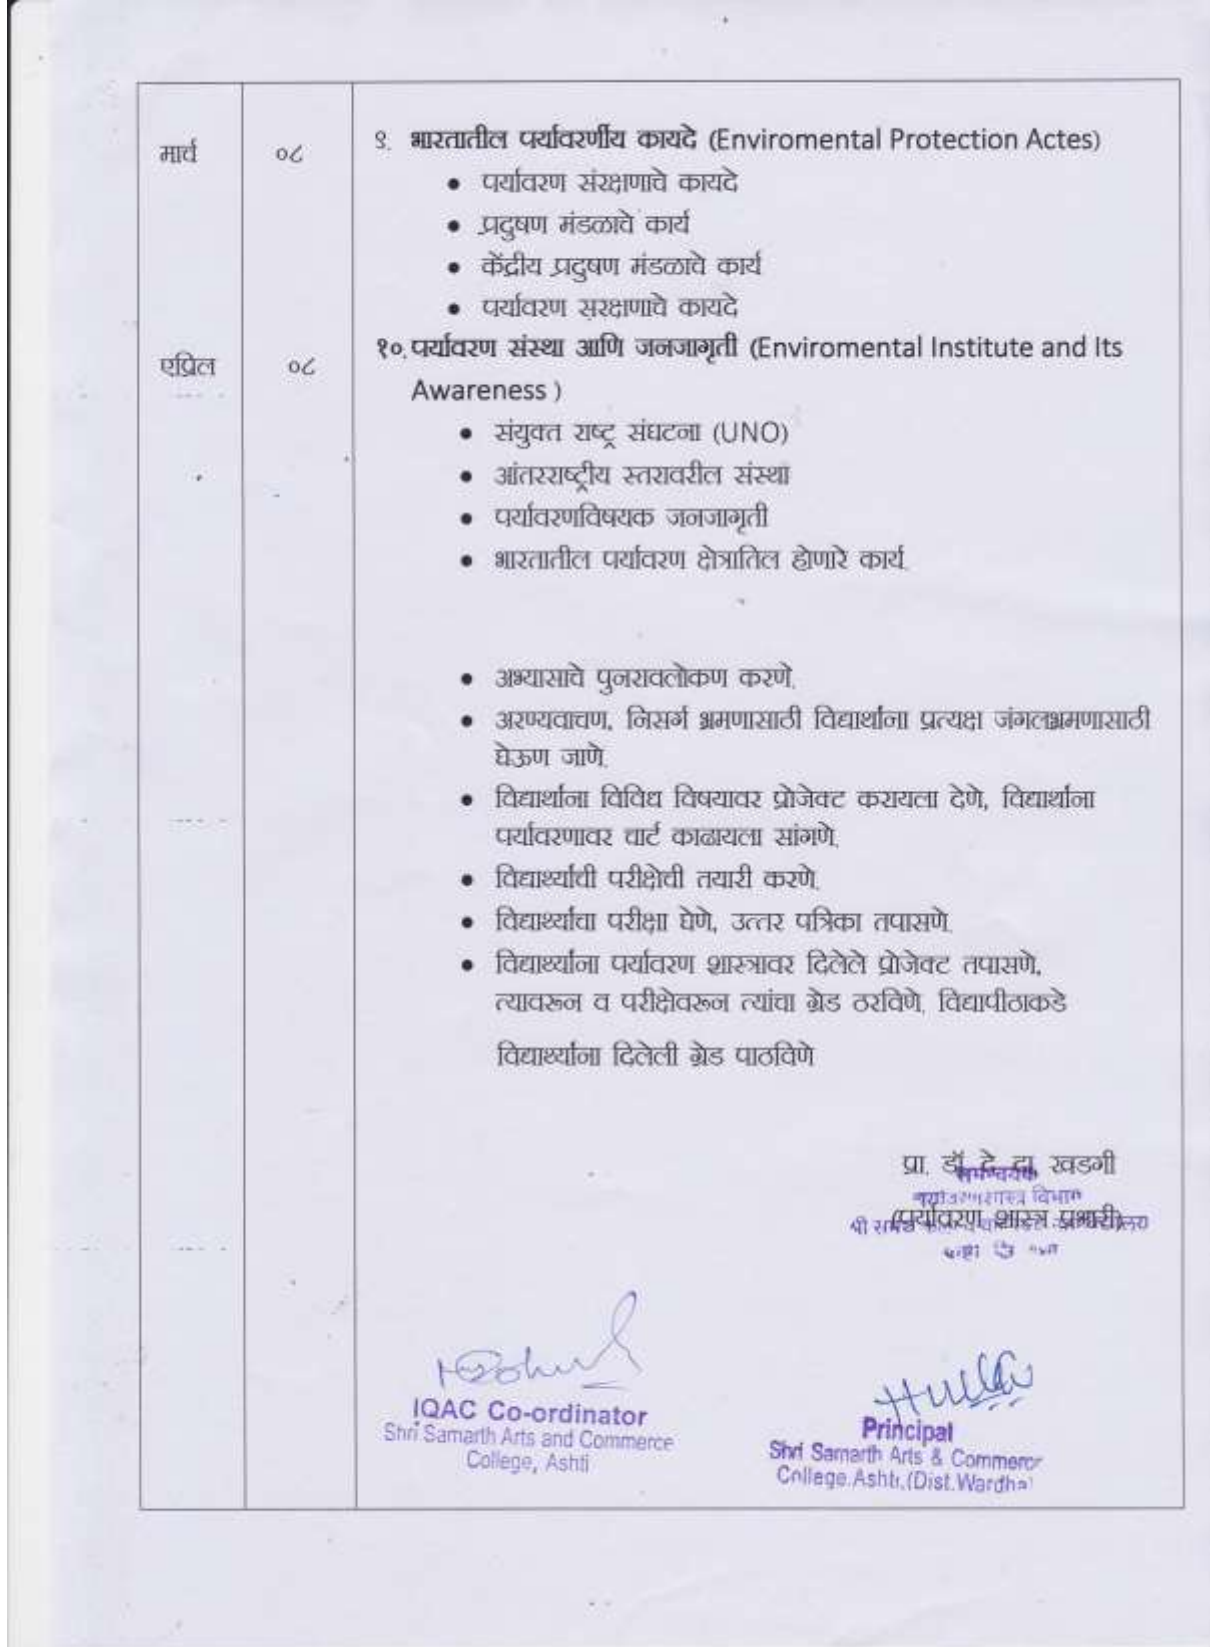 मार्च ०८ ९. भारतातील पर्यावरर्णीय कायदे (Enviromental Protection Actes)
• पर्यावरण संरक्षणाचे कायदे
• प्रदुषण मंडळाचे कार्य
• केंद्रीय प्रदुषण मंडळाचे कार्य
• पर्यावरण सरक्षणाचे कायदे
एप्रिल ०८ १०. पर्यावरण संस्था आणि जनजागृती (Enviromental Institute and Its
Awareness )
• संयुक्त राष्ट्र संघटना (UNO)
• आंतरराष्ट्रीय स्तरावरील संस्था
• पर्यावरणविषयक जनजागृती
• भारतातील पर्यावरण क्षेत्रातिल होणारे कार्य.
• अभ्यासाचे पुनरावलोकण करणे.
• अरण्यवाचण, निसर्ग भ्रमणासाठी विद्यार्थाना प्रत्यक्ष जंगलभ्रमणासाठी
घेऊण जाणे.
• विद्यार्थाना विविध विषयावर प्रोजेक्ट करायला देणे, विद्यार्थाना
पर्यावरणावर चार्ट काढायला सांगणे.
• विद्यार्थ्यांची परीक्षेची तयारी करणे.
• विद्यार्थ्यांचा परीक्षा घेणे, उत्तर पत्रिका तपासणे.
• विद्यार्थ्यांना पर्यावरण शास्त्रावर दिलेले प्रोजेक्ट तपासणे,
त्यावरून व परीक्षेवरून त्यांचा ग्रेड ठरविणे. विद्यापीठाकडे
विद्यार्थ्यांना दिलेली ग्रेड पाठविणे
प्रा. डॉ. दे. दा. खडगी
समन्वयक
पर्यावरणशास्त्र विभाग
(पर्यावरण शास्त्र प्रभारी)
IQAC Co-ordinator
Shri Samarth Arts and Commerce
College, Ashti
Principal
Shri Samarth Arts & Commerce
College.Ashti.(Dist.Wardha)